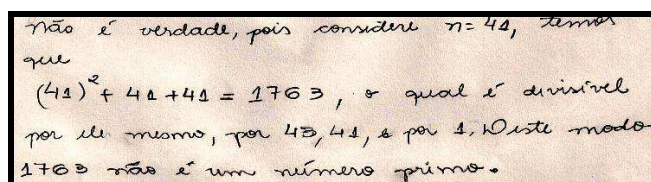 não é verdade, pois considere n=41, temos
que
(41)² + 41 + 41 = 1763, o qual é divisível
por ele mesmo, por 43, 41, e por 1. Deste modo
1763 não é um número primo.